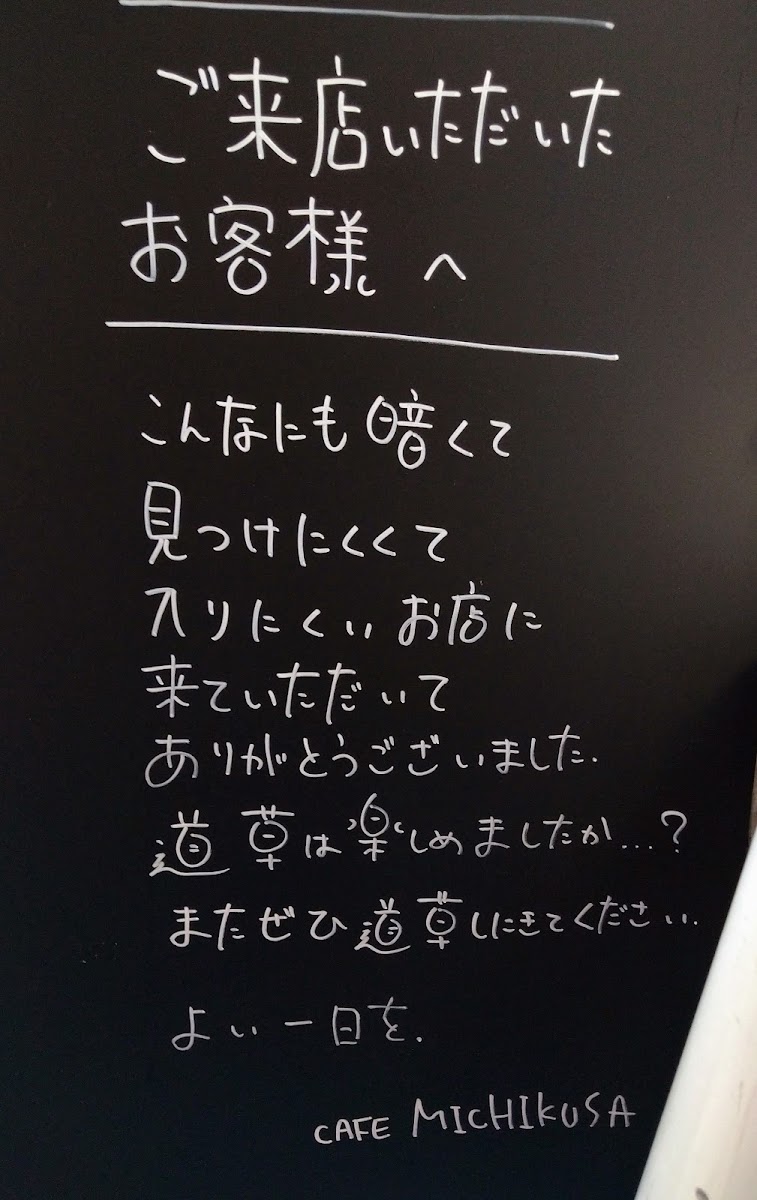 ご来店いただいた
お客様へ
こんなにも暗くて
見つけにくくて
入りにくいお店に
来ていただいて
ありがとうございました.
道草は楽しめましたか...?
またぜひ道草しにきてください.
よい一日を.
CAFE MICHIKUSA